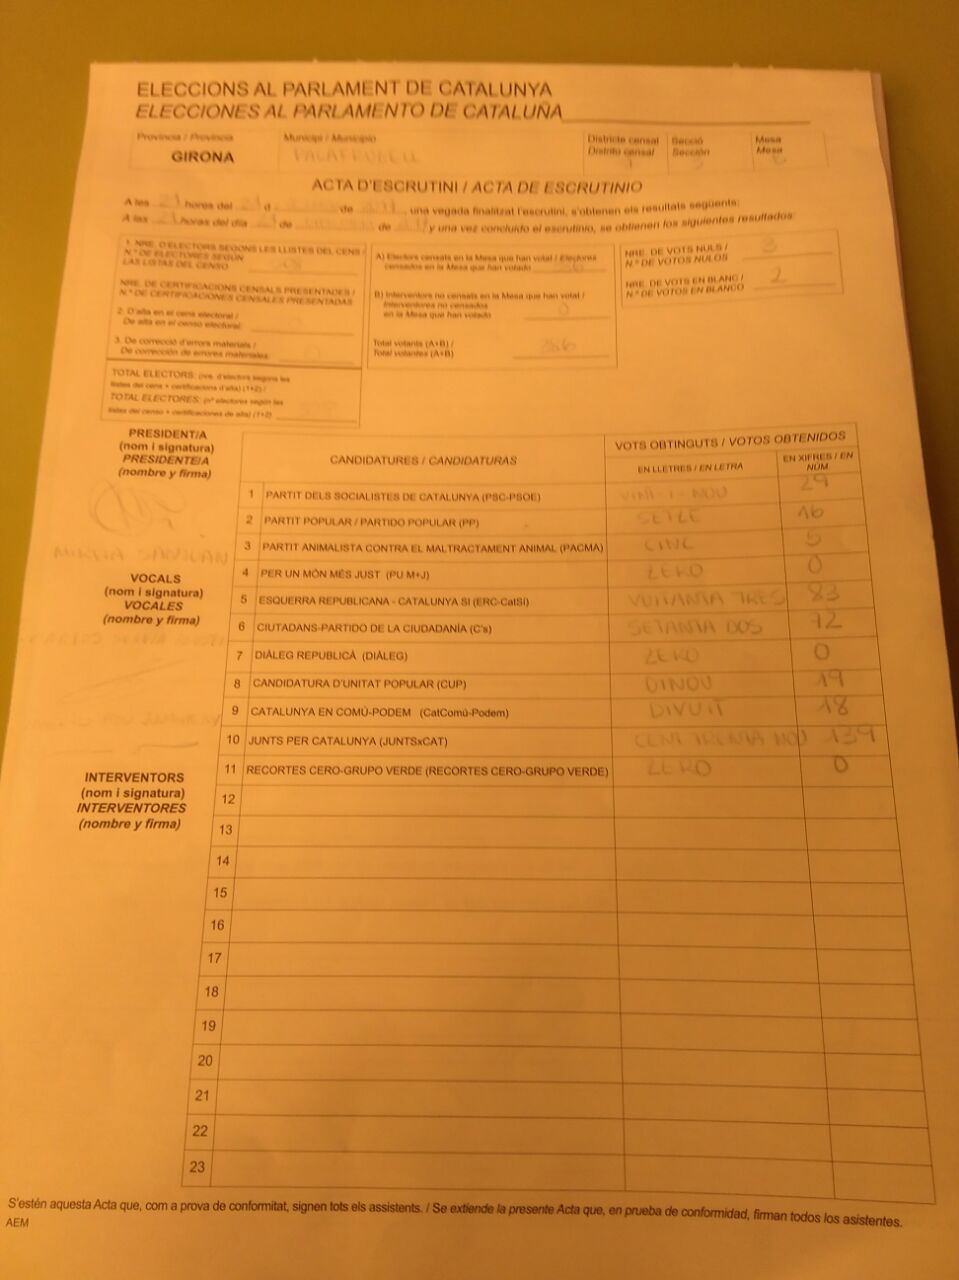 ELECCIONS AL PARLAMENT DE CATALUNYA
ELECCIONES AL PARLAMENTO DE CATALUÑA
Província / Provincia
GIRONA
Municipi / Municipio
PALAFRUGELL
Districte censal
Distrito censal
Secció
Sección
Mesa
Mesa
ACTA D'ESCRUTINI / ACTA DE ESCRUTINIO
A les 21 hores del 21 d de , una vegada finalitzat l'escrutini, s'obtenen els resultats següents:
A las horas del día de de y una vez concluido el escrutinio, se obtienen los siguientes resultados:
1. NRE. D'ELECTORS SEGONS LES LLISTES DEL CENS /
N.º DE ELECTORES SEGÚN
LAS LISTAS DEL CENSO
NRE. DE CERTIFICACIONS CENSALS PRESENTADES /
N.º DE CERTIFICACIONES CENSALES PRESENTADAS
2. D'alta en el cens electoral /
De alta en el censo electoral:
3. De correcció d'errors materials /
De corrección de errores materiales:
TOTAL ELECTORS: (nre. d'electors segons les
llistes del cens + certificacions d'alta) (1+2) /
TOTAL ELECTORES: (nº electores según las
listas del censo + certificaciones de alta) (1+2)
A) Electors censats en la Mesa que han votat / Electores
censados en la Mesa que han votado
B) Interventors no censats en la Mesa que han votat /
Interventores no censados
en la Mesa que han votado 0
Total votants (A+B) /
Total votantes (A+B) 386
NRE. DE VOTS NULS /
N.º DE VOTOS NULOS 3
NRE. DE VOTS EN BLANC /
N.º DE VOTOS EN BLANCO 2
PRESIDENT/A
(nom i signatura)
PRESIDENTE/A
(nombre y firma)
VOCALS
(nom i signatura)
VOCALES
(nombre y firma)
INTERVENTORS
(nom i signatura)
INTERVENTORES
(nombre y firma)
CANDIDATURES / CANDIDATURAS
VOTS OBTINGUTS / VOTOS OBTENIDOS
EN LLETRES / EN LETRA
EN XIFRES / EN
NÚM.
1 PARTIT DELS SOCIALISTES DE CATALUNYA (PSC-PSOE) VINT-I-NOU 29
2 PARTIT POPULAR / PARTIDO POPULAR (PP) SETZE 16
3 PARTIT ANIMALISTA CONTRA EL MALTRACTAMENT ANIMAL (PACMA) CINC 5
4 PER UN MÓN MÉS JUST (PU M+J) ZERO 0
5 ESQUERRA REPUBLICANA - CATALUNYA SÍ (ERC-CatSí) VUITANTA TRES 83
6 CIUTADANS-PARTIDO DE LA CIUDADANÍA (C's) SETANTA DOS 72
7 DIÀLEG REPUBLICÀ (DIÀLEG) ZERO 0
8 CANDIDATURA D'UNITAT POPULAR (CUP) DINOU 19
9 CATALUNYA EN COMÚ-PODEM (CatComú-Podem) DIVUIT 18
10 JUNTS PER CATALUNYA (JUNTSxCAT) CENT TRENTA NOU 139
11 RECORTES CERO-GRUPO VERDE (RECORTES CERO-GRUPO VERDE) ZERO 0
12
13
14
15
16
17
18
19
20
21
22
23
S'estén aquesta Acta que, com a prova de conformitat, signen tots els assistents. / Se extiende la presente Acta que, en prueba de conformidad, firman todos los asistentes.
AEM